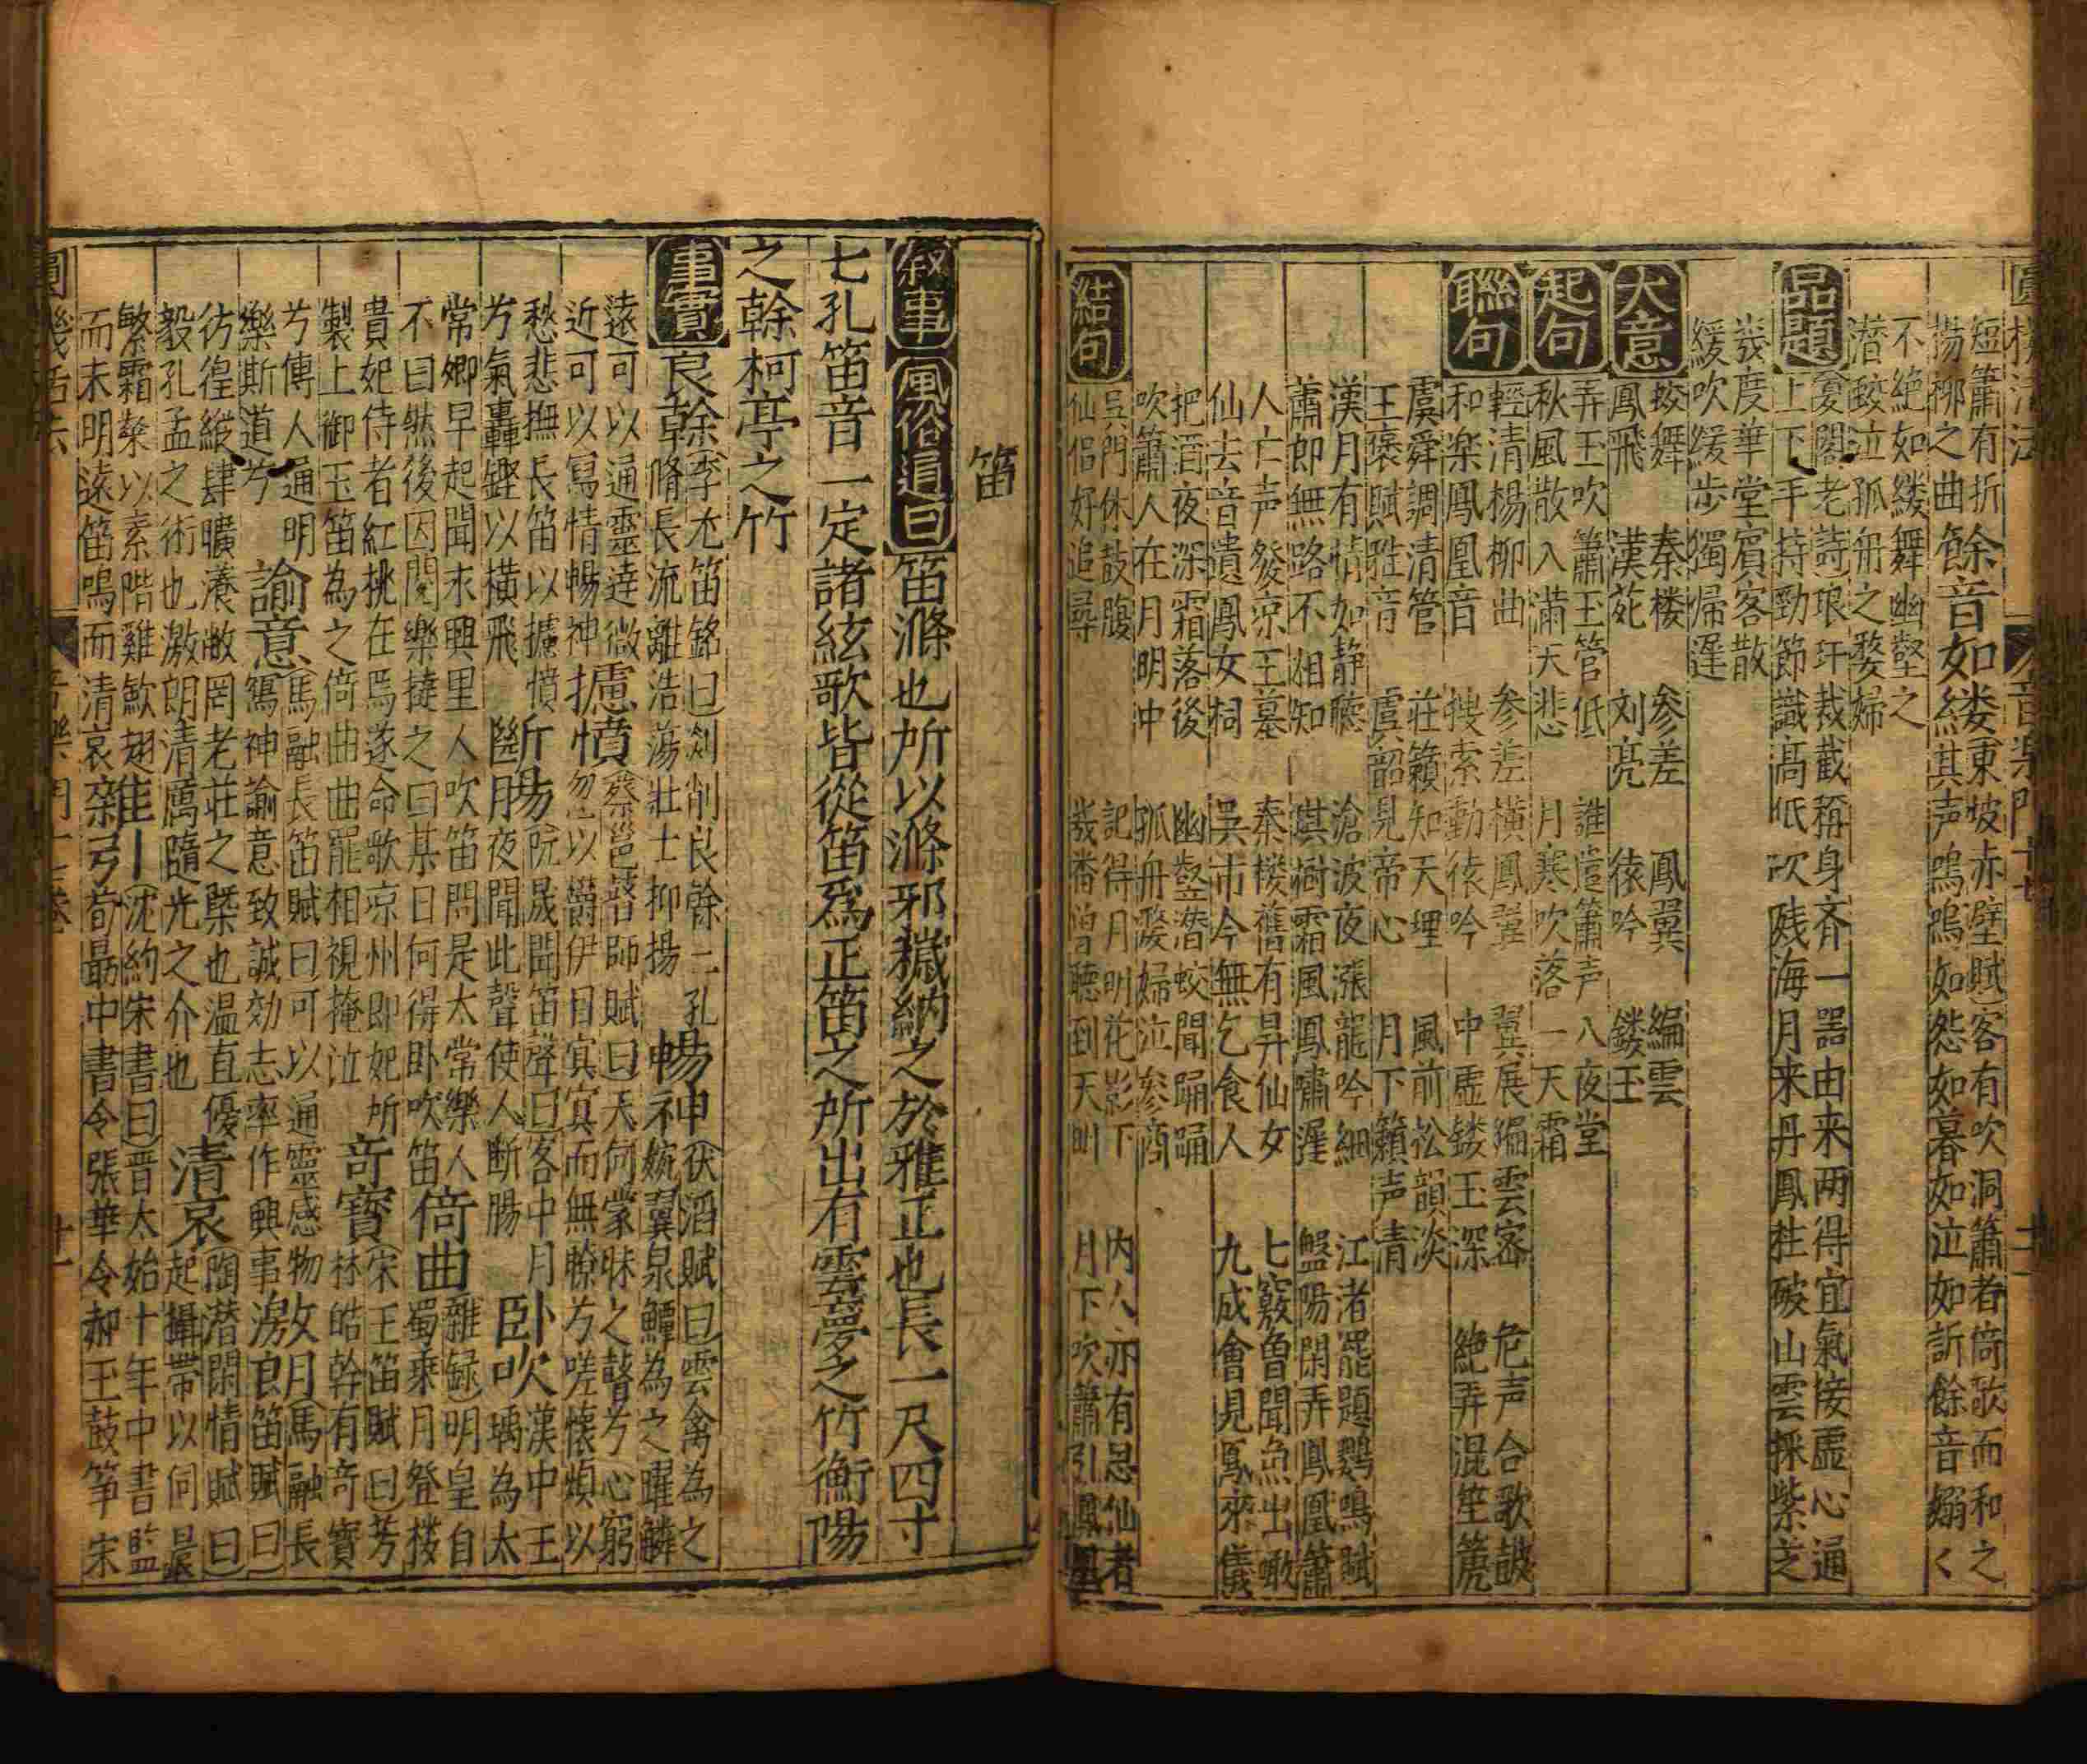 短簫有折
揚柳之曲餘音如縷東坡赤壁賦客有吹洞簫者倚歌而和之
其声嗚嗚如怨如慕如泣如訴餘音嫋く
不絶如縷舞幽壑之
潜蛟泣孤舟之嫠婦
品題
夏閣老詩琅玕裁截稱身齐一噐由来两得宜氣接虚心通
上下手持勁節識髙低吹残海月来丹鳳拄破山雲採紫芝
㡬度華堂賔客散
緩吹緩步獨歸遲
大意
蛟舞 秦楼 参差 鳳翼 編雲
鳳飛 漢苑 刘亮 猿吟 鏤玉
起句
弄玉吹簫玉管低 誰遣簫声八夜堂
秋風散入滿天悲 月寒吹落一天霜
聯句
輕清楊柳曲 参差橫鳳翼 翼展編雲宻 危声合歌皷
和楽鳳凰音 搜索動猿吟 中虚鏤玉深 絶弄混笙箎
虞舜調清管 莊籟知天理 風前松韻淡
王褒賦雅音 虞韶見帝心 月下籟声清
漢月有情如静聽 滄波夜漲龍吟細 江渚罷題鸚鳴賦
蕭郎無路不相知 琪樹霜風鳳嘯遲 盤陽閑弄鳳凰簫
人亡声發京王墓 秦楼舊有昇仙女 七竅魯聞魚出噉
仙去音遺鳳女祠 吳市今無乞食人 九成會見鳳來儀
把酒夜深霜落後 幽壑潜蛟聞踊踊
吹簫人在月明中 孤舟嫠婦泣参商
結句
吳門休鼓腹 記得月明花影下 内人亦有思仙者
仙侣好追尋 㡬番曽聽到天明 月下吹簫引鳳凰
笛
叙事
風俗通曰笛滌也所以滌邪穢納之於雅正也長一尺四寸
七孔笛音一定諸絃歌皆從笛爲正笛之所出有雲夢之竹衡陽
之幹柯亭之竹
事實
良幹(李尤笛銘曰)剡削良幹二孔
脩長流離浩蕩壯士抑揚
暢神(伏滔賦曰)雲禽為之
婉翼泉鱏為之躍鱗
遠可以通靈達微
近可以寫情暢神
攄憤(蔡邕瞽師賦曰)夫何蒙昧之瞽兮心窮
忽以欝伊目㝠㝠而無瞭兮嗟懐煩以
愁悲撫長笛以攄憤
兮氣轟鏗以横飛
断腸阮晟聞笛聲曰客中月
夜聞此聲使人断腸
卧吹漢中王
瑀為太
常卿早起聞末興里人吹笛問是太常樂人
不曰然後因閱樂撻之曰某日何得卧吹笛
倚曲(雜録)明皇自
蜀乘月登楼
貴妃侍者紅桃在焉遂命歌凉州即妃所
製上御玉笛為之倚曲曲罷相視掩泣
竒寳(宋玉笛賦曰)芳
林皓幹有竒寳
兮傳人通明
樂斯道兮
諭意(馬融長笛賦曰可以通靈感物
寫神諭意致誠効志率作興事
放月(馬融長
激良笛賦曰)
彷徨縱肆曠瀁敝罔老莊之槩也温直優
毅孔孟之術也激朗清厲隨光之介也
清哀(陶潜閑情賦曰)
起攝帶以伺晨
繁霜粲以素階雞歛翅
而未明遠笛鳴而清哀
雜引(沈約宋書曰)晋太始十年中書監
荀最中書令張華令郝王鼓筝宋